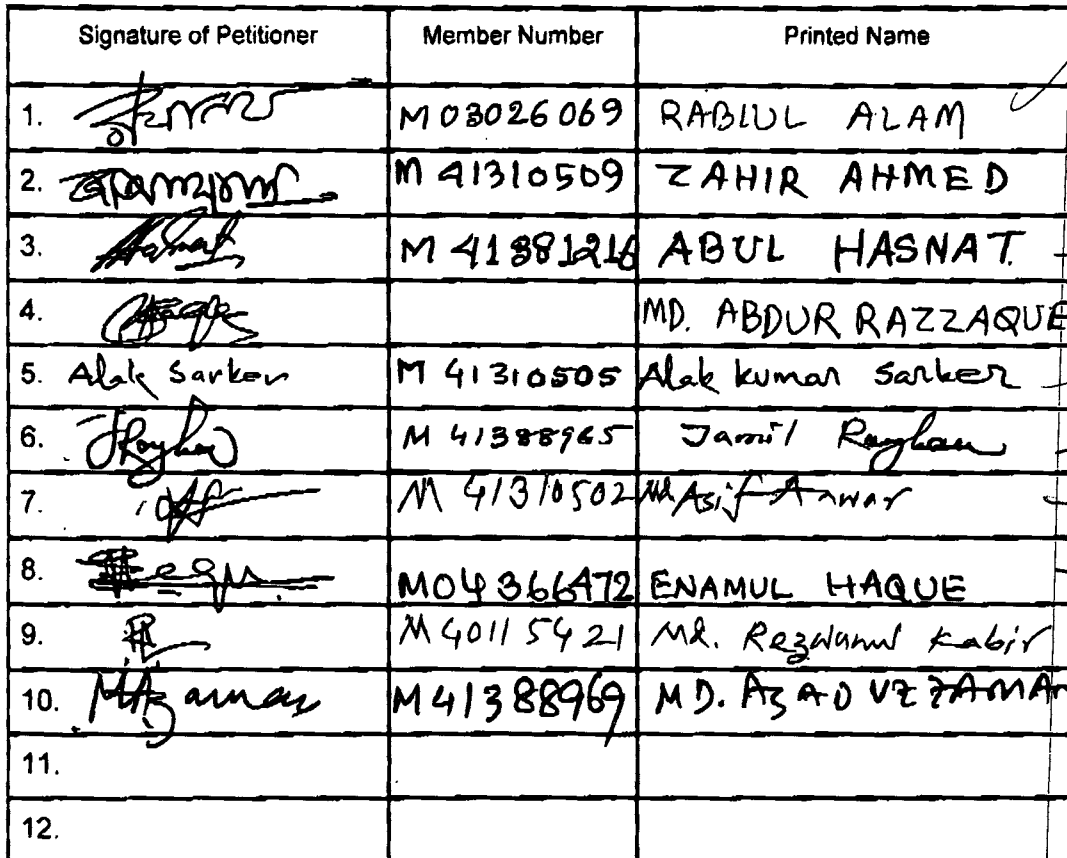 Signature of Petitioner Member Number Printed Name
1. M03026069 RABIUL ALAM
2. M 41310509 ZAHIR AHMED
3. M 41381216 ABUL HASNAT.
4. MD. ABDUR RAZZAQUE
5. Alak Sarker M 41310505 Alak kumar Sarker
6. M 41388965 Jamil Rayhan
7. M 41310502 Md Asif Anwar
8. M04366472 ENAMUL HAQUE
9. M 40115421 Md. Rezwanul Kabir
10. M41388969 MD. AZAD UZ ZAMAN
11.
12.